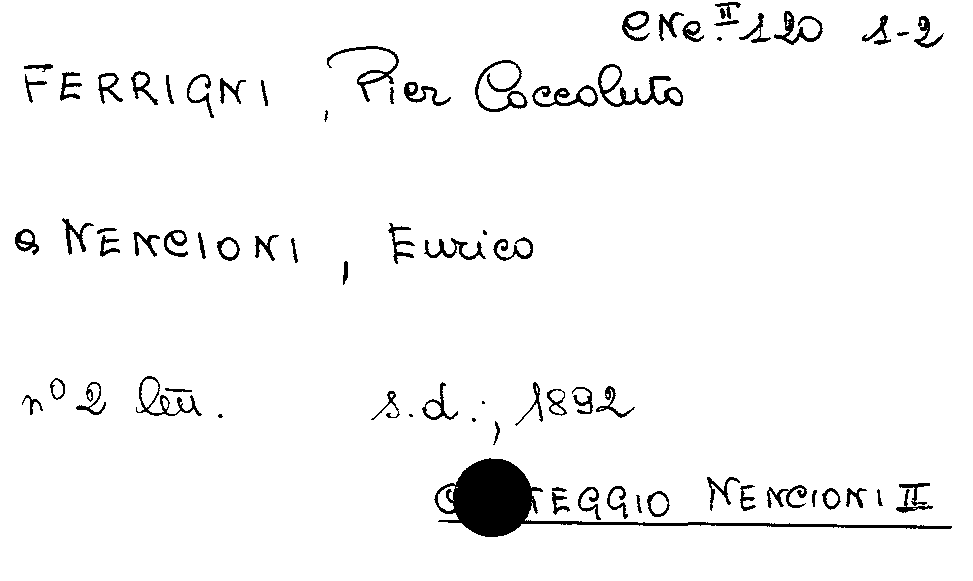 CNe.II 120 1-2
FERRIGNI, Pier Coccoluto
a NENCIONI, Enrico
n° 2 lett. s.d.; 1892
NENCIONI II